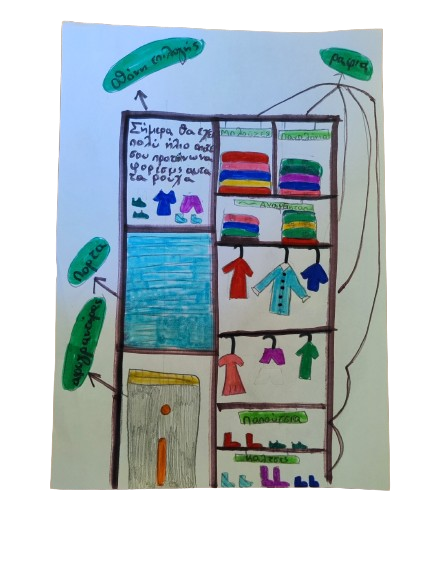 οθόνη επιλογής
ραφια
Σήμερα θα έχει
πολύ ήλιο
σου προτείνω να
φορέσεις αυτα
τα ρούχα
Μπλούζες
Παντελόνια
Πόρτα
Παπούτσια
κάλτσες